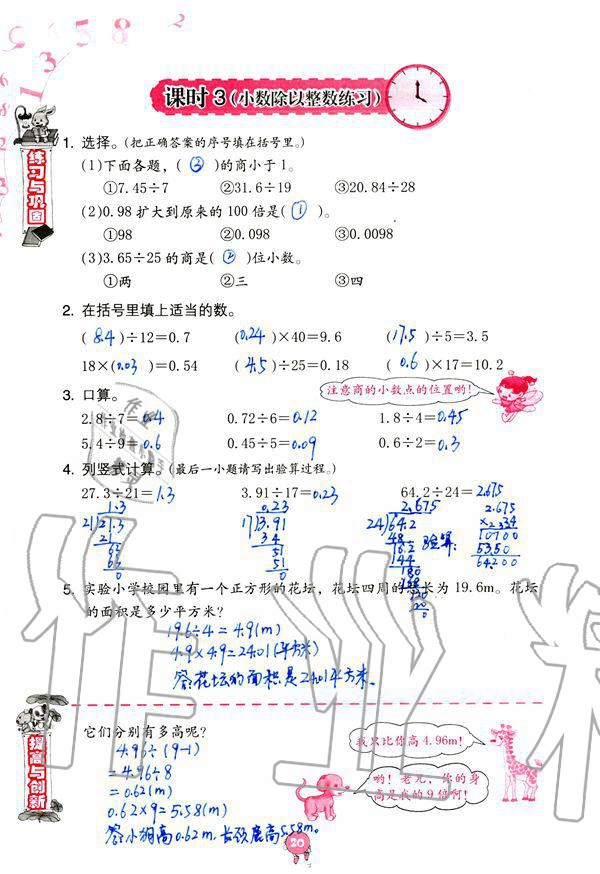 课时 3(小数除以整数练习)
练习与巩固
1. 选择。(把正确答案的序号填在括号里。)
(1)下面各题，( ③ )的商小于 1。
①7.45÷7 ②31.6÷19 ③20.84÷28
(2)0.98 扩大到原来的 100 倍是( ① )。
①98 ②0.098 ③0.0098
(3)3.65÷25 的商是( ② )位小数。
①两 ②三 ③四
2. 在括号里填上适当的数。
( 8.4 )÷12=0.7 ( 0.24 )×40=9.6 ( 17.5 )÷5=3.5
18×( 0.03 )=0.54 ( 4.5 )÷25=0.18 ( 0.6 )×17=10.2
注意商的小数点的位置哟!
3. 口算。
2.8÷7=0.4 0.72÷6=0.12 1.8÷4=0.45
5.4÷9=0.6 0.45÷5=0.09 0.6÷2=0.3
4. 列竖式计算。(最后一小题请写出验算过程。)
27.3÷21=1.3 3.91÷17=0.23 64.2÷24=2.675
1.3 0.23 2.675 2.675
21 27.3 17 3.91 24 64.2 ×24
21 34 48 验算: 10700
63 51 162 5350
63 51 144 64200
0 0 180
168
120
120
0
5. 实验小学校园里有一个正方形的花坛，花坛四周的总长为 19.6m。花坛
的面积是多少平方米?
19.6÷4=4.9(m)
4.9×4.9=24.01(平方米)
答:花坛的面积是24.01平方米。
提高与创新
它们分别有多高呢?
我只比你高 4.96m!
哟! 老兄，你的身
高是我的 9 倍啊!
4.96÷(9-1)
=4.96÷8
=0.62(m)
0.62×9=5.58(m)
答:小狗高0.62m,长颈鹿高5.58m。
20
作业